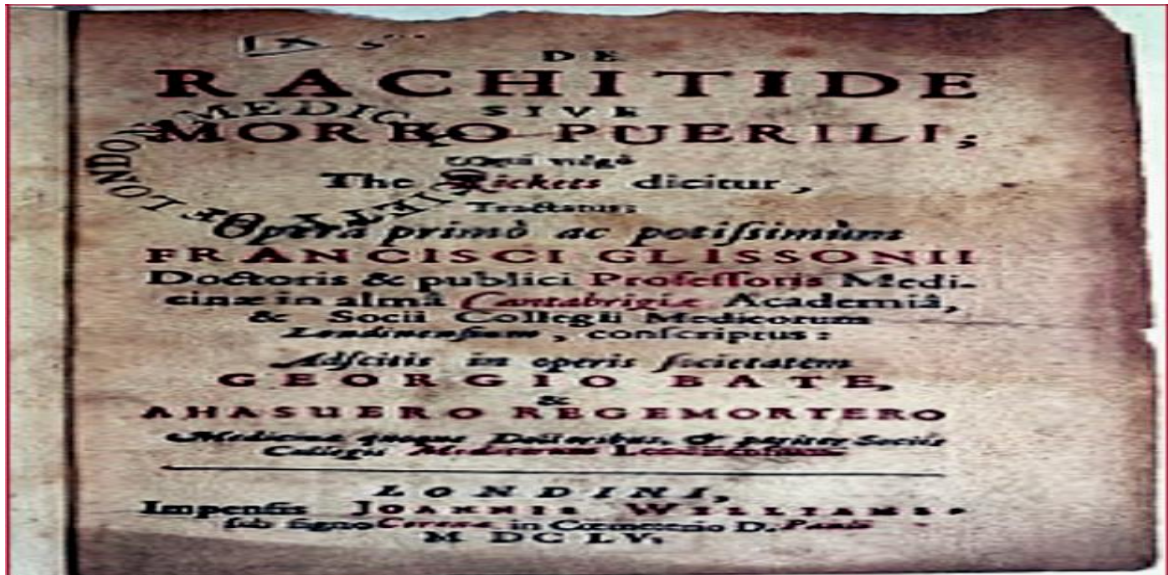 DE
RACHITIDE
SIVE
MORBO PUERILI,
qui vulgò
The Rickets dicitur,
Tractatus:
Opera primò ac potiſſimùm
FRANCISCI GLISSONII
Doctoris & publici Profeſſoris Medi-
cinæ in almâ Cantabrigiæ Academiâ,
& Socii Collegii Medicorum
Londinenſium, conſcriptus:
Adſcitis in operis ſocietatem
GEORGIO BATE,
&
AHASUERO REGEMORTERO
Medicinæ quoque Doctoribus, & pariter Sociis
Collegii Medicorum Londinenſium.
LONDINI,
Impenſis JOANNIS WILLIAMS.
ſub ſigno Coronæ in Cœmeterio D. Pauli
M DC LV.